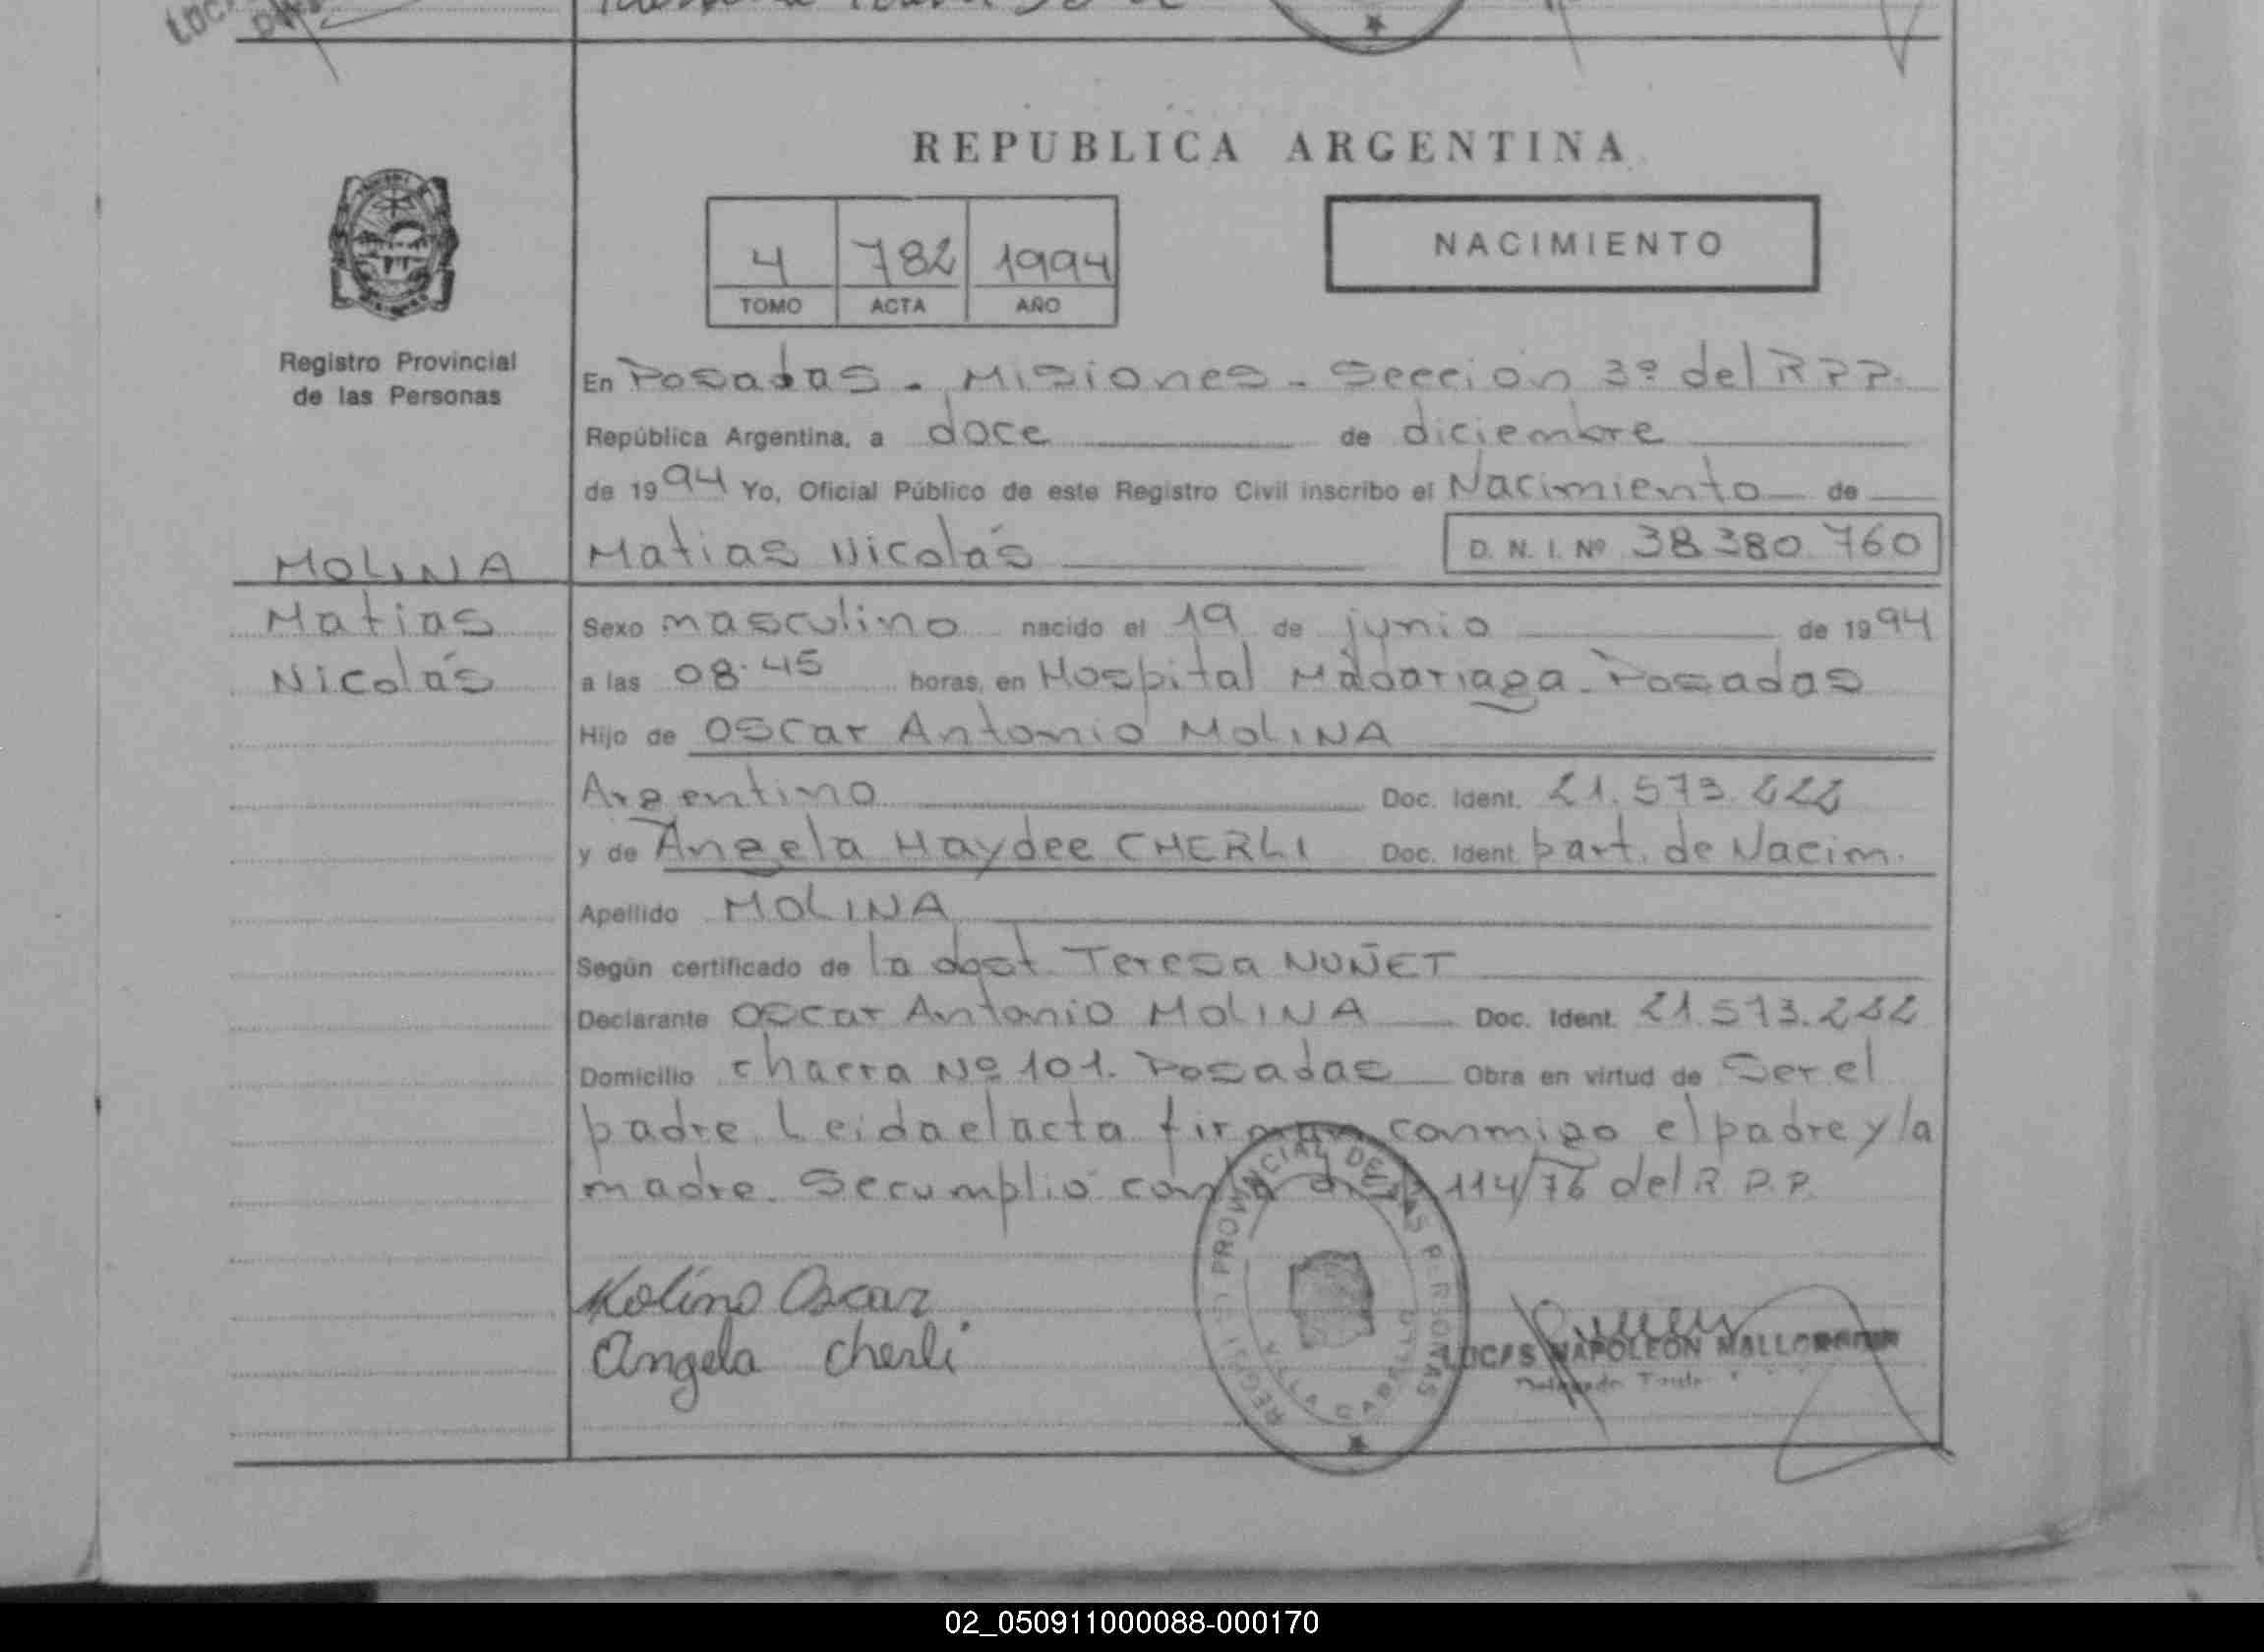 REPUBLICA ARGENTINA
4 782 1994
TOMO ACTA AÑO
NACIMIENTO
Registro Provincial
de las Personas
En Posadas - Misiones - Sección 3º del R P P.
República Argentina, a doce de diciembre
de 1994 Yo, Oficial Público de este Registro Civil inscribo el Nacimiento de
Matias Nicolás D. N. I. Nº 38 380 760
MOLINA
Matias
Nicolás
Sexo masculino nacido el 19 de junio de 1994
a las 08.45 horas, en Hospital Madariaga - Posadas
Hijo de Oscar Antonio MOLINA
Argentino Doc. Ident. 21.573.222
y de Angela Haydee CHERLI Doc. Ident. part. de Nacim.
Apellido MOLINA
Según certificado de la obst. Teresa NUÑET
Declarante Oscar Antonio MOLINA Doc. Ident. 21.573.222
Domicilio chacra Nº 101. Posadas Obra en virtud de Ser el
padre. Leida el acta firman conmigo el padre y la
madre. Se cumplió con la 114/76 del R P.P.
Molina Oscar
Angela Cherli
PROVINCIAL DE LAS PERSONAS
VILLA CABELLO
LUCAS NAPOLEON
02_050911000088-000170